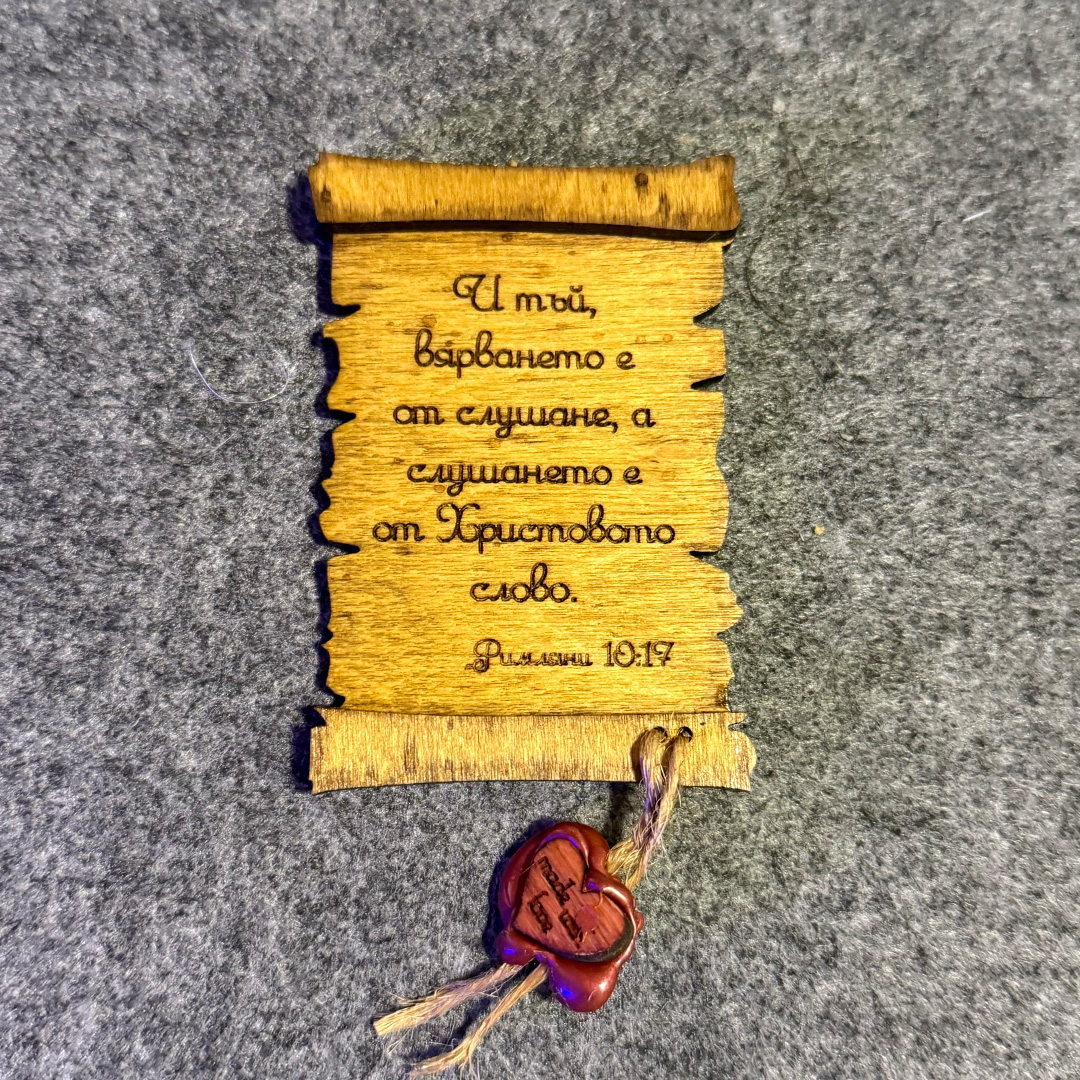 И тъй,
вярването е
от слушане, а
слушането е
от Христовото
слово.
Римляни 10:17
made with
love